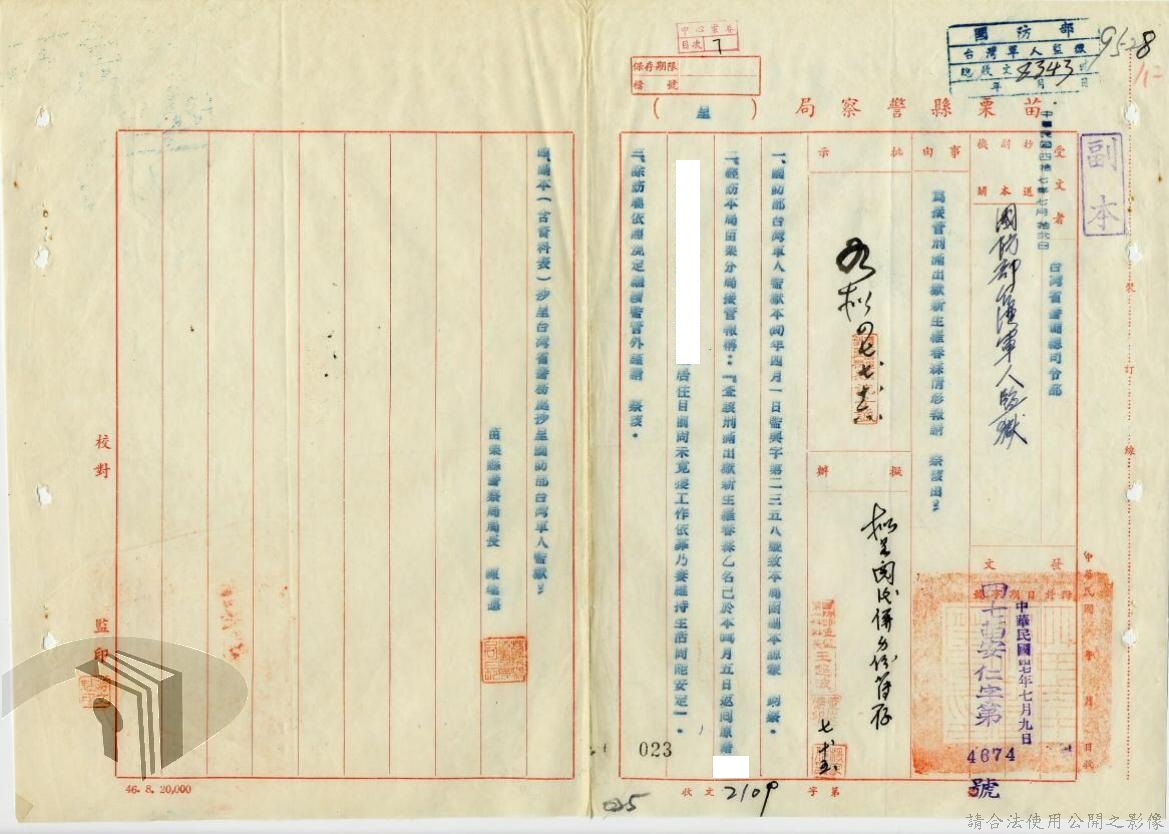 中心案卷
目次 7
保存期限
檔號
國防部
台灣軍人監獄
總收文 4343 號
年 月 日
95-28
苗栗縣警察局(呈)
副本
中華民國四拾七年七月拾貳日
受文者
台灣省警備總司令部
抄送副本機關
國防部台灣軍人監獄
事由
為復管刑滿出獄新生羅春蘇情形報請 察核由
批示
如拟
擬辦
拟呈閱後併分份存
發文
中華民國 年 月 日收
中華民國四七年七月九日
四七苗安仁字第
4674
號
一、國防部台灣軍人監獄本四年四月一日監典字第二三五八號致本局函副本諒蒙 明察。
二、經飭本局苗栗分局接管報稱:「查該刑滿出獄新生羅春蘇乙名已於本四月五日返回原籍
居住目前尚未覓獲工作依靠乃妻維持生活尚能安定」。
三、除飭屬依照規定繼續監管外謹請 察核。
四、副本(含資料表)抄呈台灣省警務處抄呈國防部台灣軍人監獄。
苗栗縣警察局局長
校對
監印
023
025
收文 2109 字第
46. 8. 20,000
裝 訂 線
請合法使用公開之影像